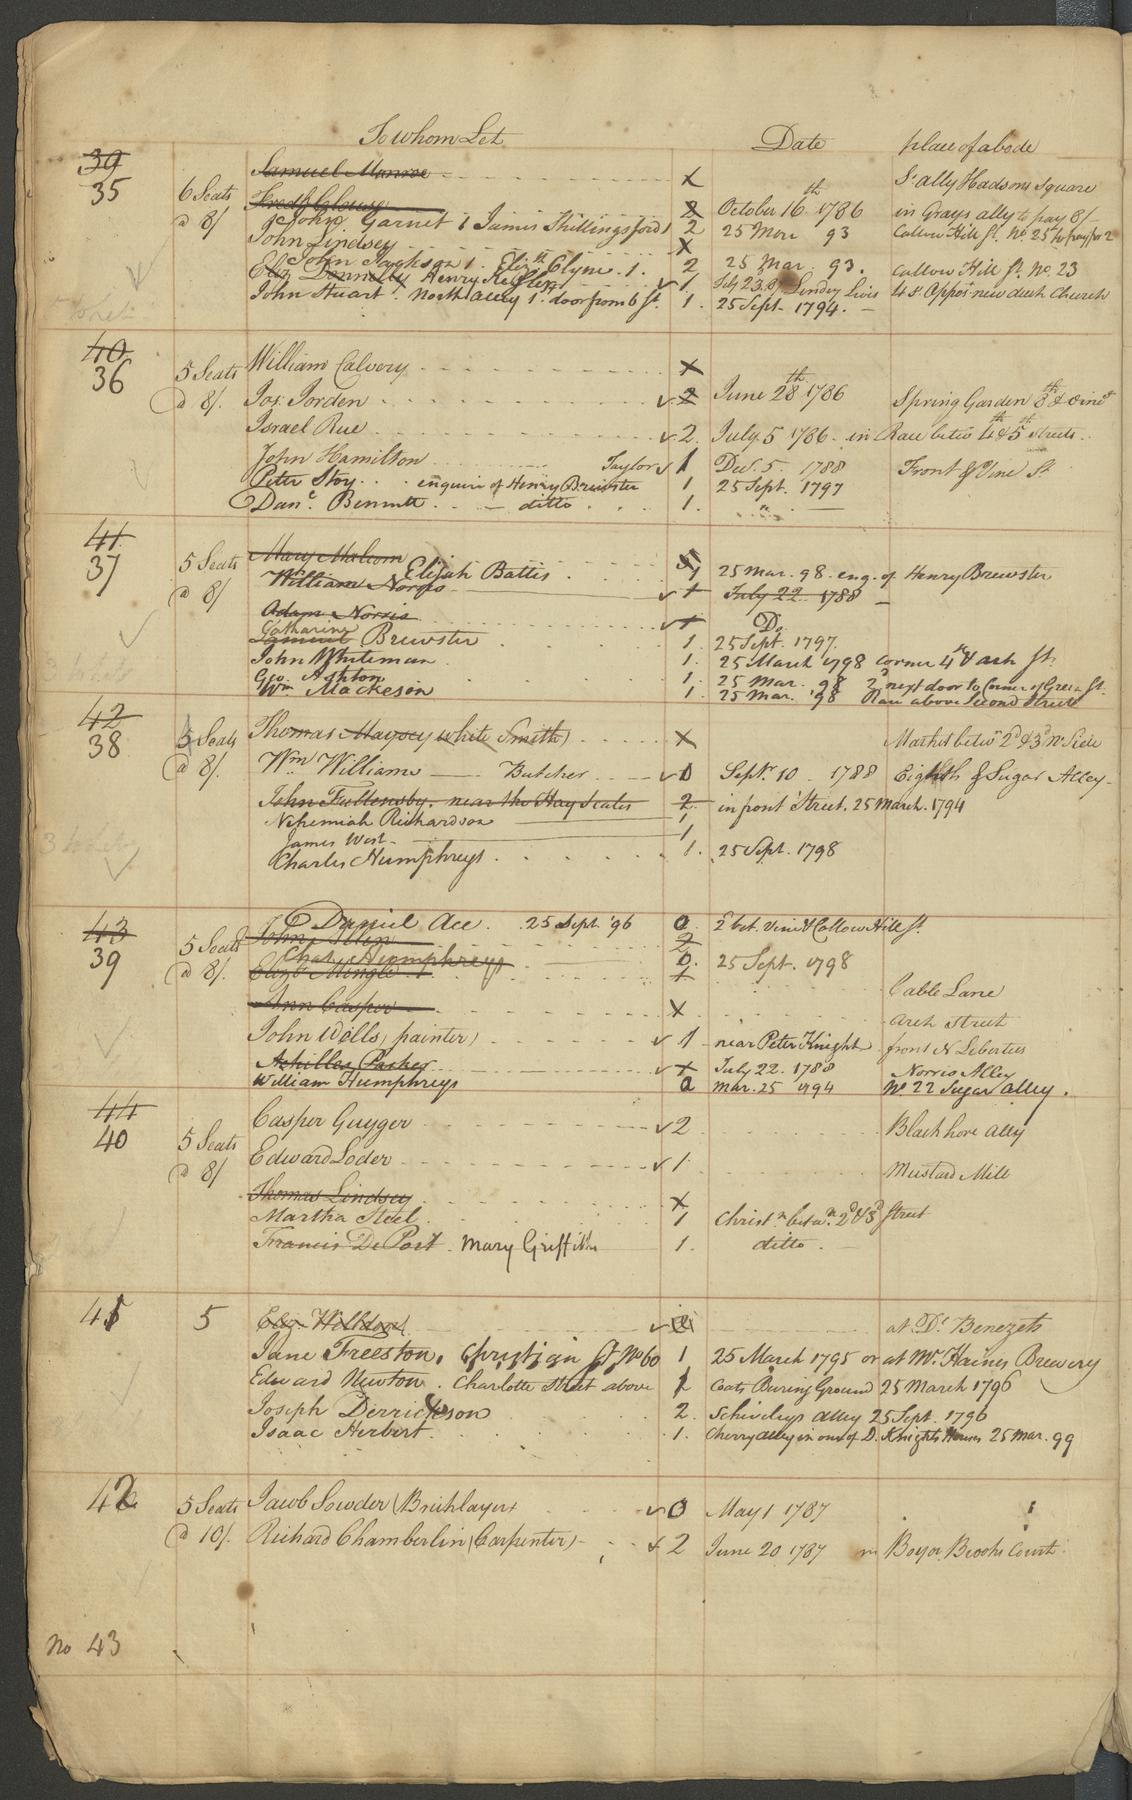 To whom Let Date place of abode
39
35
6 Seats
a 8/
Samuel Munroe X S. ally Hudsons Square
Fredk Glouse 2 October 16th 1786 in Grays ally to pay 8/
John Garnet 1 James Shillingsford 1 2 25 Mar 93 Callow Hill St. No. 25 to pay for 2
John Lindsey X
John Jackson 1. Elizth Clyne. 1. 2 25 Mar. 93. Callow Hill St. No. 23
Eliz Donnelly Henry Keffler 1 Lindsey lives 4 St. oppos. new dutch Church
John Stuart. North alley 1. door from 6 St. 1. 25 Sept. 1794.
40
36
5 Seats
a 8/.
William Calvery X
Jos. Jorden 2 June 28th 1786 Spring Garden 8th & Vine St
Israel Rue 2. July 5 1786. in Race betw 4 & 5th streets.
John Hamilton Taylor 1 Dec. 5. 1788 Front & Vine St.
Peter Stoy. enquire of Henry Brewster 1 25 Sept. 1797
Danl. Bennett ditto 1. "
41
37
5 Seats
a 8/
Mary Malcom Elijah Battis 1 25 Mar. 98. enq. of Henry Brewster
William Norris 1 July 22 1788
Adam Norris 1 Do.
Catharine
Samuel Brewster 1. 25 Sept. 1797.
John Whiteman 1. 25 March 1798 corner 4th & Arch St.
Geo. Ashton 1. 25 Mar. 98 2d next door to Corner of Green St.
Wm Mackeson 1. 25 Mar. '98 Race above Second Street
42
38
5 Seats
a 8/.
Thomas Maysey white Smith) X Market betw 2d & 3d No Side
Wm Williams Butcher 0 Sepr. 10 1788 Eighth & Sugar Alley
John Fullensby. near the Hay Scales 2 in front Street. 25 March. 1794
Nehemiah Richardson 1
James West 1
Charles Humphreys 1. 25 Sept. 1798
43
39
5 Seats
a 8/.
Daniel Ace. 25 Sept. '96 0 2d bet. Vine & Callow Hill St.
John Allen 2
Chas. Humphreys 0. 25 Sept. 1798
Elizth Mingle 1
Ann Casper X Cable Lane
Arch Street
John Wells (painter) 1 near Peter Knight front N Liberties
Achilles Parker 1 July 22. 1788 Norris Alley
William Humphreys 0 Mar. 25 1794 No. 22 Sugar alley.
44
40
5 Seats
a 8/
Casper Guyger 2 Blackhorse ally
Edward Loder 1. Mustard Mill
Thomas Lindsey X
Martha Steel 1 Christn betwn 2d & 3d Street
Francis De Post. Mary Griffith 1. ditto.
41 5
Eliz. Welldon at Dr. Benezets
Jane Freeston, christian St No 60 1 25 March 1795 or at Mr. Haines Brewery
Edward Newton. Charlotte street above 1 Coats Buring Ground 25 March 1796
Joseph Derrickson 2. Schiveleys alley 25 Sept. 1796
Isaac Herbert. 1. Cherry alley in one of D. Knights Houses 25 Mar. 99
42
5 Seats
a 10/.
Jacob Sowder (Bricklayer) 0 May 1 1787
Richard Chamberlin (Carpenter) 2 June 20 1787 in Boyer Brooks Court.
No 43